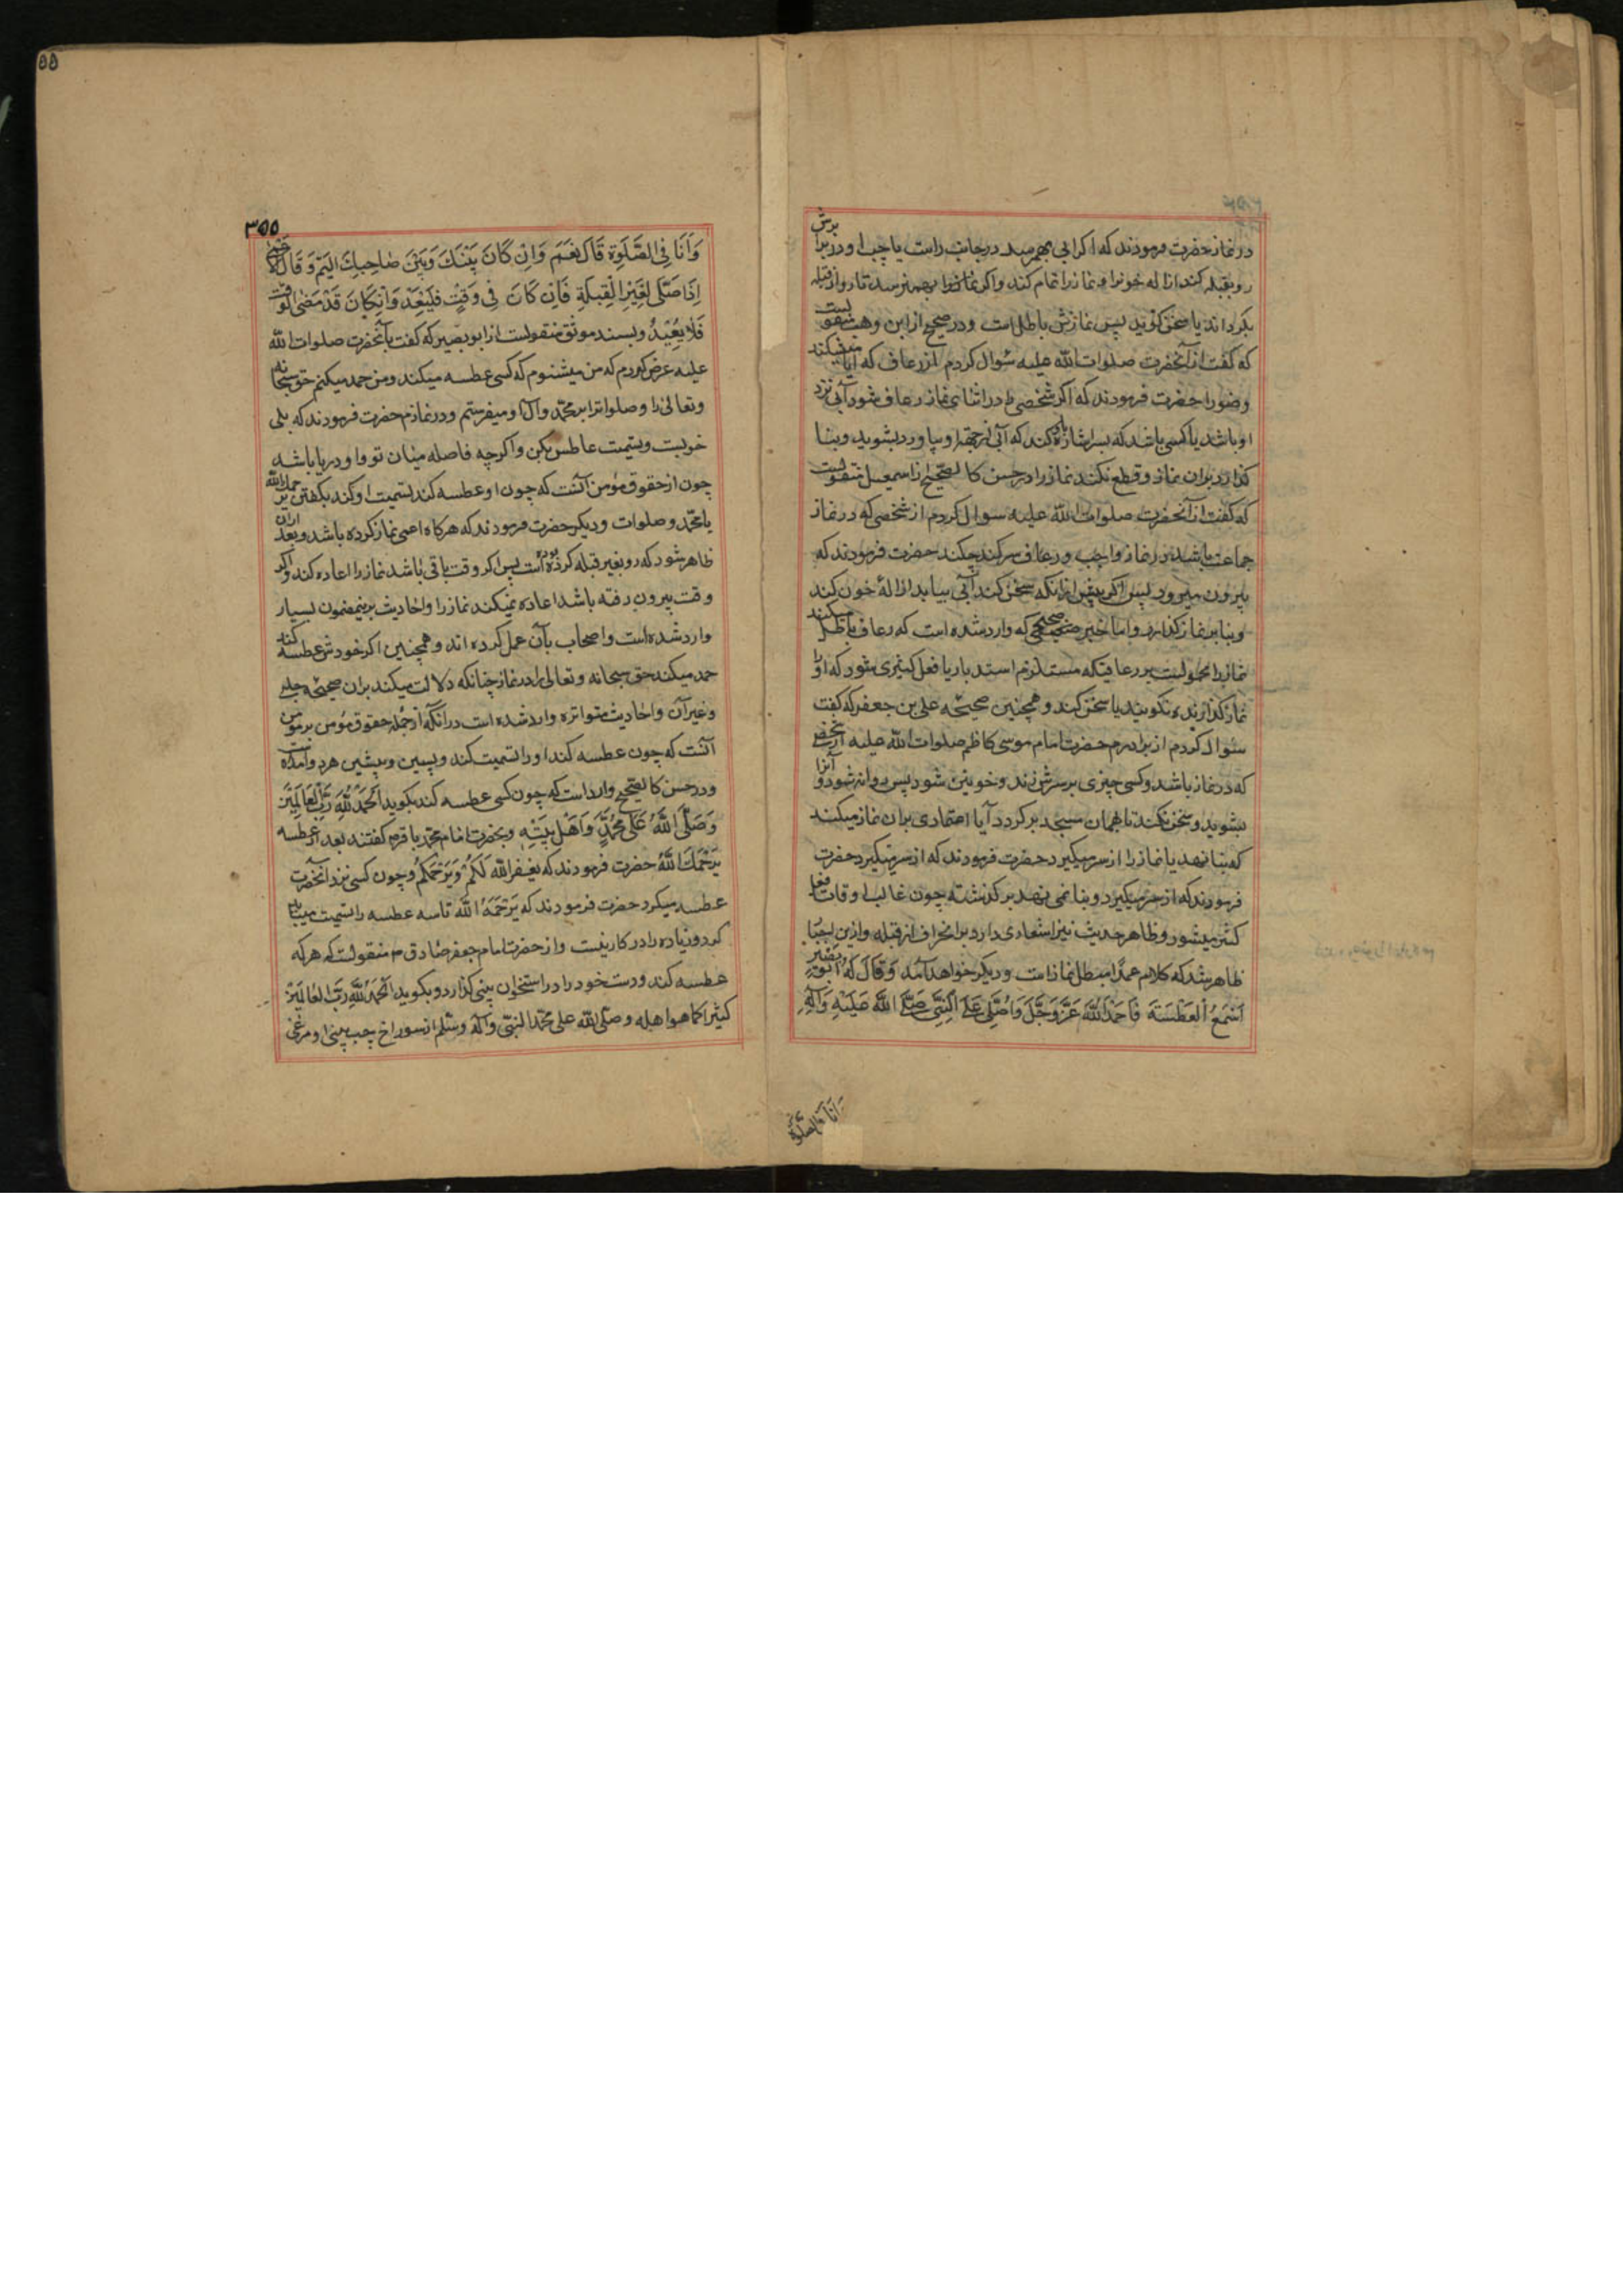 در نماز حضرت فرمودند که اکر ابی بهم رسد در جانب راست یا چپ او در برابرش
رو بقبله کند ازاله خونرا و نماز را تمام کند و اکر بهم نرسد تا رو از قبله
بکرداند یا سخن کوید پس نمازش باطل است و در صحیح از ابن وهب منقولست
که کفت از آنحضرت صلوات الله علیه سوال کردم از رعاف که آیا میشکند
وضو را حضرت فرمودند که اکر شخصی را در اثنای نماز رعاف شود آبی نزد
او باشد یا کسی باشد که بسر اشاره کند که آبی از جهة او بیاورد بشوید و بنا
کذارد بران نماز و قطع نکند نماز را در حسن کالصحیح از اسمعیل منقولست
که کفت از آنحضرت صلوات الله علیه سوال کردم از شخصی که در نماز
جماعت باشد در نماز واجب و رعاف سر کند چکند حضرت فرمودند که
بیرون میرود پس اکر پیش از انکه سخن کند آبی بیابد ازالهٔ خون کند
و بنا بر نماز کذارد و اما خبر صحیحی که وارد شده است که رعاف باطل میکند
نماز را محمولست بر رعافیکه مستلزم استدبار یا فعل کثیری شود که او را
نماز کذارنده نکویند یا سخن کند و همچنین صحیحهٔ علی بن جعفر که کفت
سئوال کردم از برادرم حضرت امام موسی کاظم صلوات الله علیه از شخصی
که در نماز باشد و کسی چیزی بر سرش زند و خونین شود پس روانه شود و آنرا
بشوید و سخن نکند تا بهمان مسجد بر کردد آیا اعتمادی بران نماز میکند
که بنا نهد یا نماز را از سر میکیرد حضرت فرمودند که از سر میکیرد حضرت
فرمودند که از سر میکیرد و بنا نمی نهد بر کذشته چون غالب اوقات فعل
کثیر میشود و ظاهر حدیث نیز اشعاری دارد بر انحراف از قبله و ازین
ظاهر شد که کلام عمدا مبطل نماز است و دیکر خواهد آمد وَقَالَ لَهُ اَبُو بَصیر
اَسْمَعُ الْعَطْسَةَ فَاَحْمَدُ اللّٰهَ عَزَّ وَجَلَّ وَاُصَلِّی عَلَی النَّبِیِّ صَلَّی اللّٰهُ عَلَیْهِ وَآلِهِ
وانا فی الصلوة
٥٥
٣٥٥
وَاَنَا فِی الصَّلٰوةِ قَالَ نَعَمْ وَاِنْ کَانَ بَیْنَکَ وَبَیْنَ صَاحِبِکَ الْیَمُّ وَقَالَ
اِذَا صَلَّی لِغَیْرِ الْقِبلَةِ فَاِنْ کَانَ فِی وَقْتٍ فَلْیُعِدْ وَاِنْ کَانَ قَدْ مَضَی الْوَقْتُ
فَلَا یُعِیْدُ و بسند موثق منقولست از ابو بصیر که کفت بآنحضرت صلوات الله
علیه عرض کردم که من میشنوم که کسی عطسه میکند و من حمد میکنم حق سبحانه
و تعالی را و صلوات بر محمد و آل او میفرستم و در نمازم حضرت فرمودند که بلی
خوبست و تسمیت عاطس بکن و اکرچه فاصله میان تو و او دریا باشد
چون از حقوق مؤمن آنست که چون او عطسه کند تسمیت او کند بکفتن یرحمک الله
یا محمد و صلوات و دیکر حضرت فرمودند که هرکاه اعمی نماز کرده باشد و بعد ازان
ظاهر شود که رو بغیر قبله کرده بوده است پس اکر وقت باقی باشد نماز را اعاده کند و اکر
وقت بیرون رفته باشد اعاده نمیکند نماز را و احادیث برینمضمون بسیار
وارد شده است و اصحاب بآن عمل کرده اند و همچنین اکر خودش عطسه کند
حمد میکند حق سبحانه و تعالی را در نماز چنانکه دلالت میکند بران صحیحهٔ حلبی
و غیر آن و احادیث متواتره وارد شده است در انکه از جمله حقوق مؤمن بر مؤمن
آنست که چون عطسه کند او را تسمیت کند و بسین و بشین هر دو آمده است
و در حسن کالصحیح وارد است که چون کسی عطسه کند بکوید اَلْحَمْدُ لِلّٰهِ رَبِّ الْعَالَمِیْنَ
وَصَلَّی اللّٰهُ عَلٰی مُحَمَّدٍ وَاَهْلِ بَیْتِهِ و بحضرت امام محمد باقر م کفتند بعد از عطسه
یَرْحَمُکَ اللّٰهُ حضرت فرمودند که یغفر اللّٰه لَکُمْ وَیَرْحَمُکُمْ و چون کسی نزد آنحضرت
عطسه میکرد حضرت فرمودند که یَرْحَمُهُ اللّٰه تا سه عطسه را تسمیت میباید
کرد و زیاده را در کار نیست و از حضرت امام جعفر صادق م منقولست که هر که
عطسه کند و دست خود را در استخوان بینی کذارد و بکوید اَلْحَمْدُ لِلّٰهِ رَبِّ الْعَالَمِیْنَ
کثیرا کما هو اهله و صلی اللّٰه علی محمد النبی و آله و سلم از سوراخ چپ بینی او مرغی